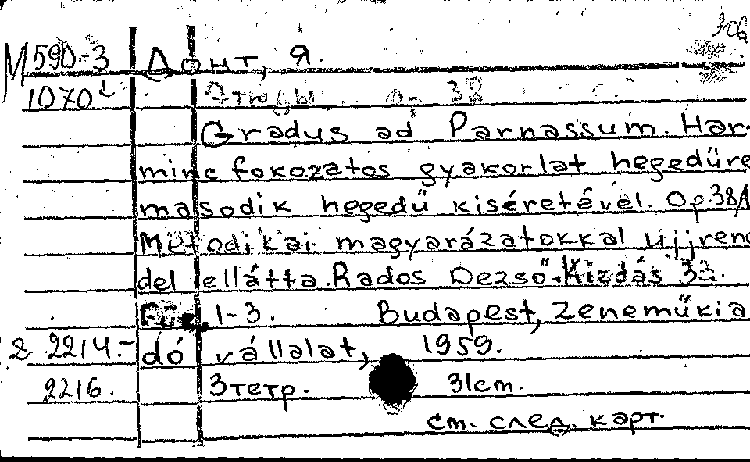 М 590-3 Донт, Я.
1070 Этюды. оп. 38
Gradus ad Parnassum. Har-
minc fokozatos gyakorlat hegedűre
masodik hegedű kiséretével. Op. 38/A
Metodikai magyarázatokkal ujjrend
del ellátta Rados Dezső. Kiadás 3a.
Füz. 1-3. Budapest, Zeneműkia
2214- dó vállalat, 1959.
2216. 3 тетр. 31 cm.
см. след. карт.